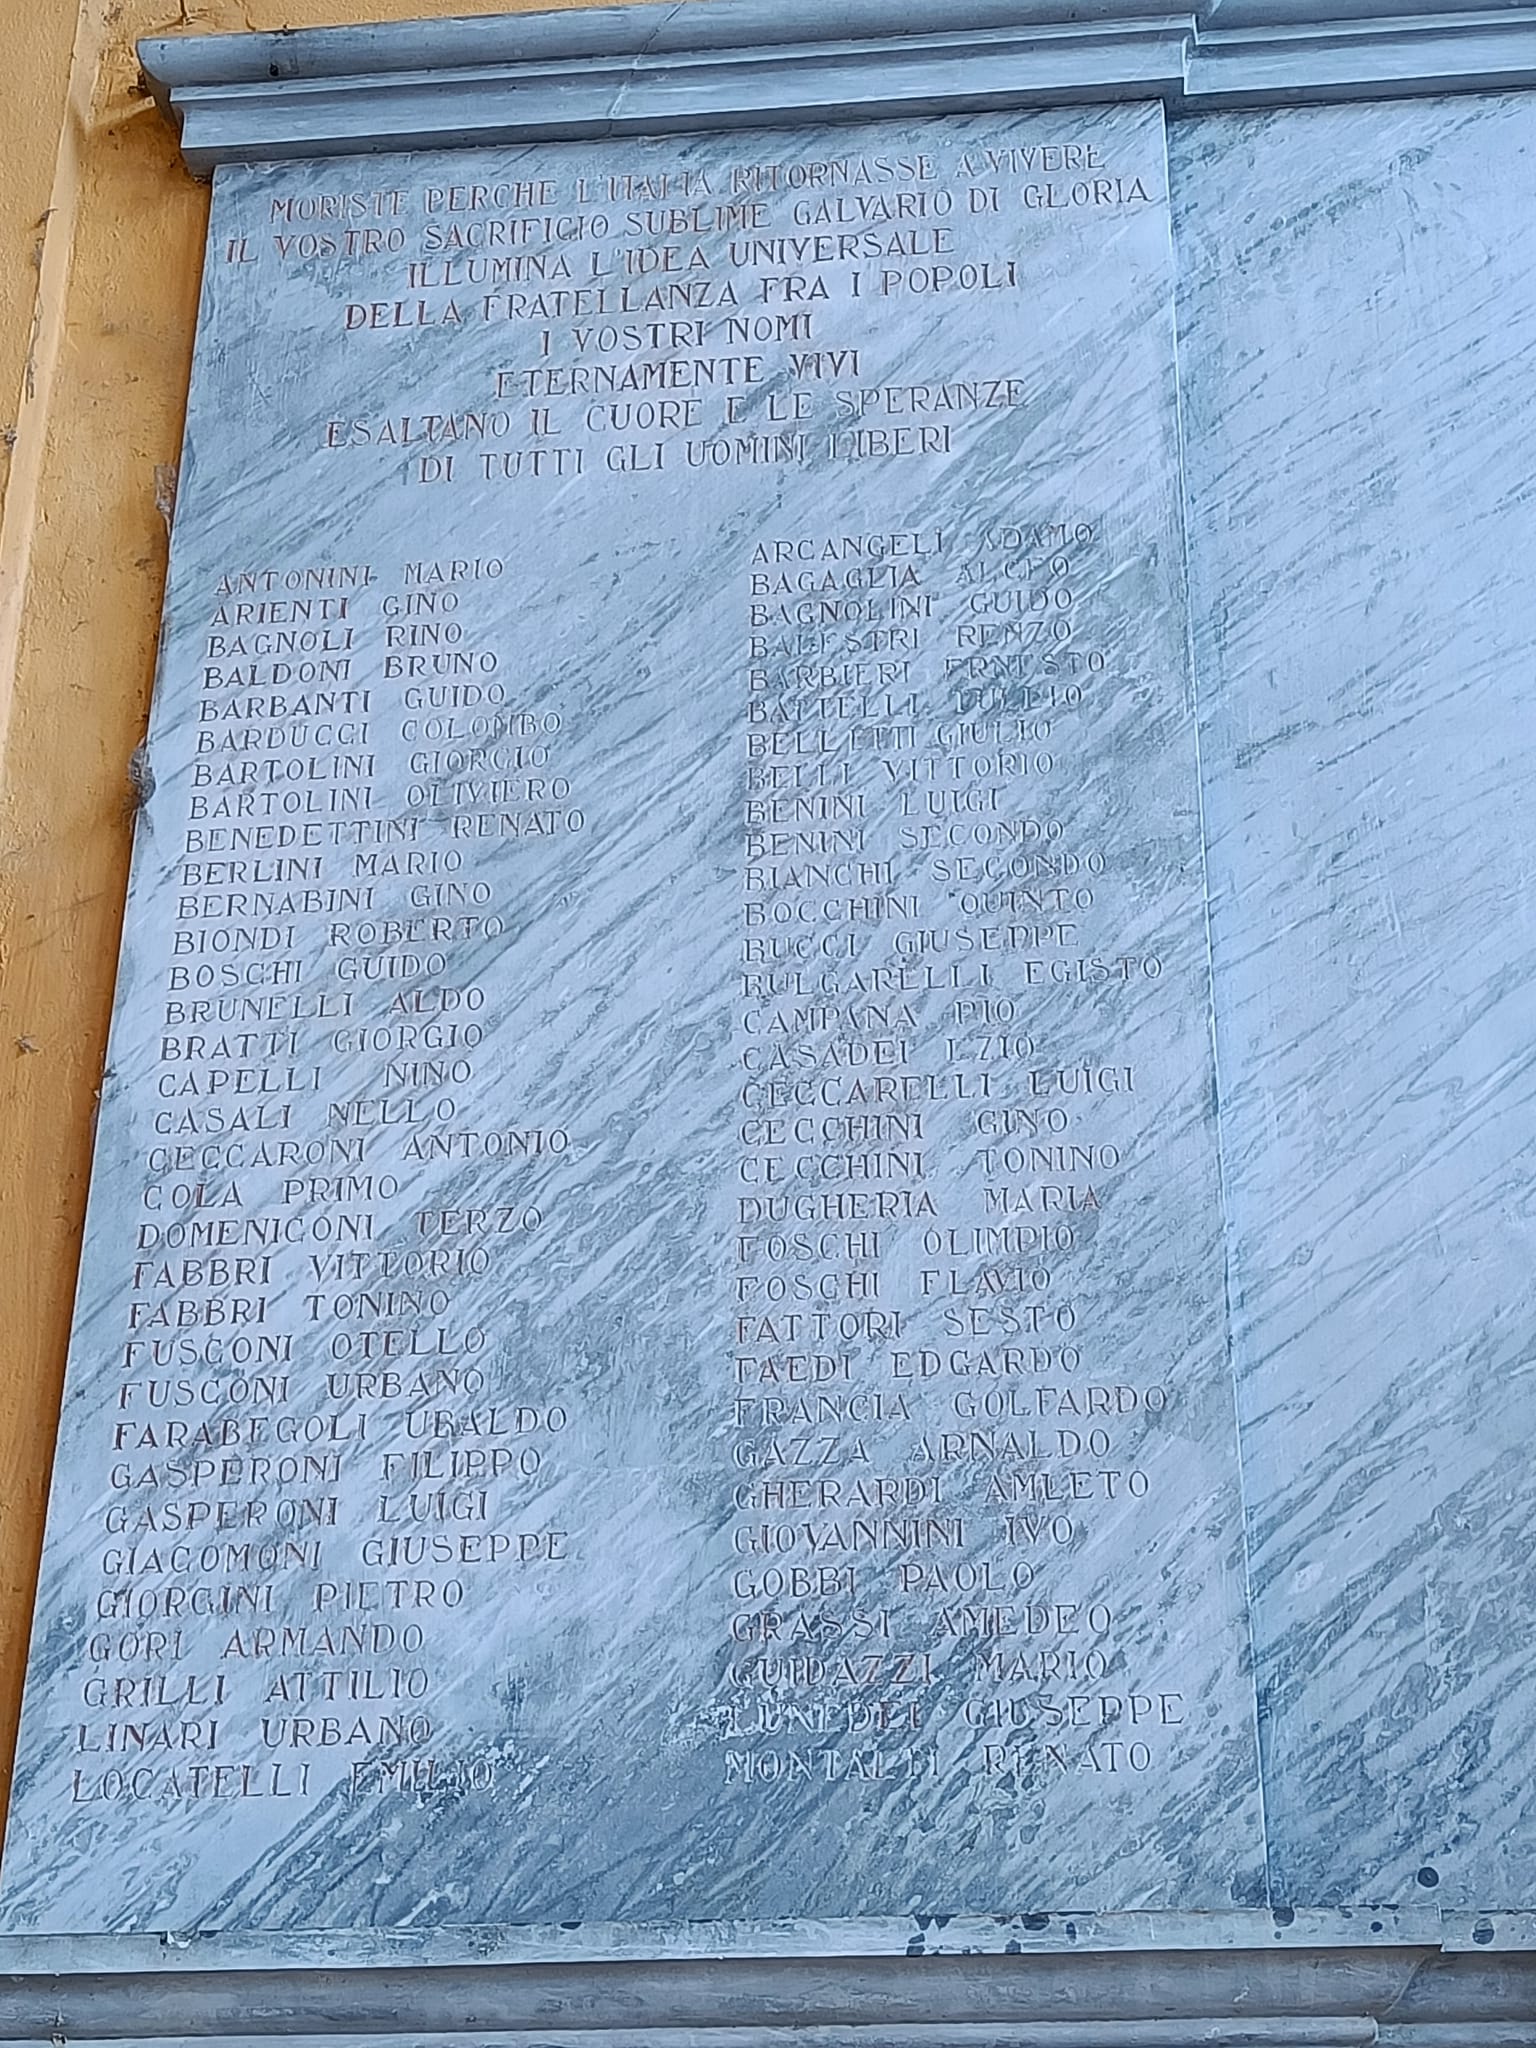 MORISTE PERCHE L'ITALIA RITORNASSE A VIVERE
IL VOSTRO SACRIFICIO SUBLIME CALVARIO DI GLORIA
ILLUMINA L'IDEA UNIVERSALE
DELLA FRATELLANZA FRA I POPOLI
I VOSTRI NOMI
ETERNAMENTE VIVI
ESALTANO IL CUORE E LE SPERANZE
DI TUTTI GLI UOMINI LIBERI
ANTONINI MARIO
ARIENTI GINO
BAGNOLI RINO
BALDONI BRUNO
BARBANTI GUIDO
BARDUCCI COLOMBO
BARTOLINI GIORGIO
BARTOLINI OLIVIERO
BENEDETTINI RENATO
BERLINI MARIO
BERNABINI GINO
BIONDI ROBERTO
BOSCHI GUIDO
BRUNELLI ALDO
BRATTI GIORGIO
CAPELLI NINO
CASALI NELLO
CECCARONI ANTONIO
COLA PRIMO
DOMENICONI TERZO
FABBRI VITTORIO
FABBRI TONINO
FUSCONI OTELLO
FUSCONI URBANO
FARABEGOLI UBALDO
GASPERONI FILIPPO
GASPERONI LUIGI
GIACOMONI GIUSEPPE
GIORGINI PIETRO
GORI ARMANDO
GRILLI ATTILIO
LINARI URBANO
LOCATELLI EMILIO
ARCANGELI ADAMO
BAGAGLIA ALCEO
BAGNOLINI GUIDO
BALESTRI RENZO
BARBIERI ERNESTO
BATTELLI DUILIO
BELLETTI GIULIO
BELLI VITTORIO
BENINI LUIGI
BENINI SECONDO
BIANCHI SECONDO
BOCCHINI QUINTO
BUCCI GIUSEPPE
BULGARELLI EGISTO
CAMPANA PIO
CASADEI EZIO
CECCARELLI LUIGI
CECCHINI GINO
CECCHINI TONINO
DUGHERIA MARIA
FOSCHI OLIMPIO
FOSCHI FLAVIO
FATTORI SESTO
FAEDI EDGARDO
FRANCIA GOLFARDO
GAZZA ARNALDO
GHERARDI AMLETO
GIOVANNINI IVO
GOBBI PAOLO
GRASSI AMEDEO
GUIDAZZI MARIO
LUNEDEI GIUSEPPE
MONTALTI RENATO